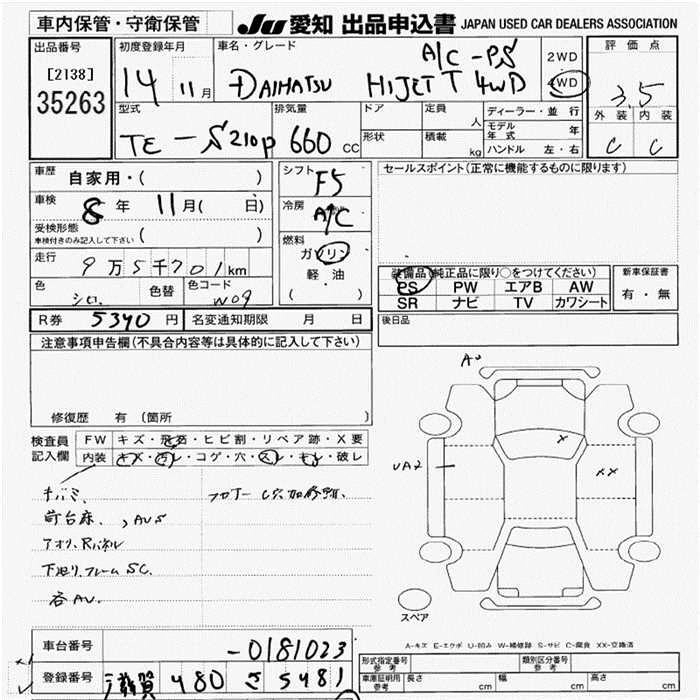 車内保管・守衛保管
JU 愛知 出品申込書 JAPAN USED CAR DEALERS ASSOCIATION
出品番号
[2138]
35263
初度登録年月
14 11月
車名・グレード
A/C-PS
DAIHATSU HIJET T 4WD
2WD
4WD
評価点
3.5
外装 内装
C C
型式
TE-S210P
排気量
660 CC
ドア
形状
定員 人
積載 kg
ディーラー・並行
モデル年式 年
ハンドル 左・右
車歴 自家用・( )
車検 8年 11月( 日)
受検形態
車検付きのみ記入して下さい ( )
走行
9万5千701km
色 シロ 色替 色コード W09
シフト F5
冷房 A/C
燃料
ガソリン
軽油
( )
セールスポイント(正常に機能するものに限ります)
装備品(純正品に限り○をつけてください)
PS PW エアB AW
SR ナビ TV カワシート
新車保証書
有・無
後日品
R券 5340円 名変通知期限 月 日
注意事項申告欄(不具合内容等は具体的に記入して下さい)
修復歴 有 (箇所
検査員記入欄
FW キズ・飛石・ヒビ割・リペア跡・X要
内装 キズ・汚レ・コゲ・穴・スレ・キレ・破レ
キバミ、
荷台床、, AUS
アオリ、Rパネル
下廻リ、フレームSC.
各AU.
フロアー C穴加修跡.
A1
UA2
X
XX
スペア
A-キズ E-エクボ U-凹み W-補修跡 S-サビ C-腐食 XX-交換済
車台番号 -0181023
登録番号 滋賀 480 さ 5481
形式指定番号 参考
類別区分番号 参考
車庫証明用 参考 長さ cm 幅 cm 高さ cm